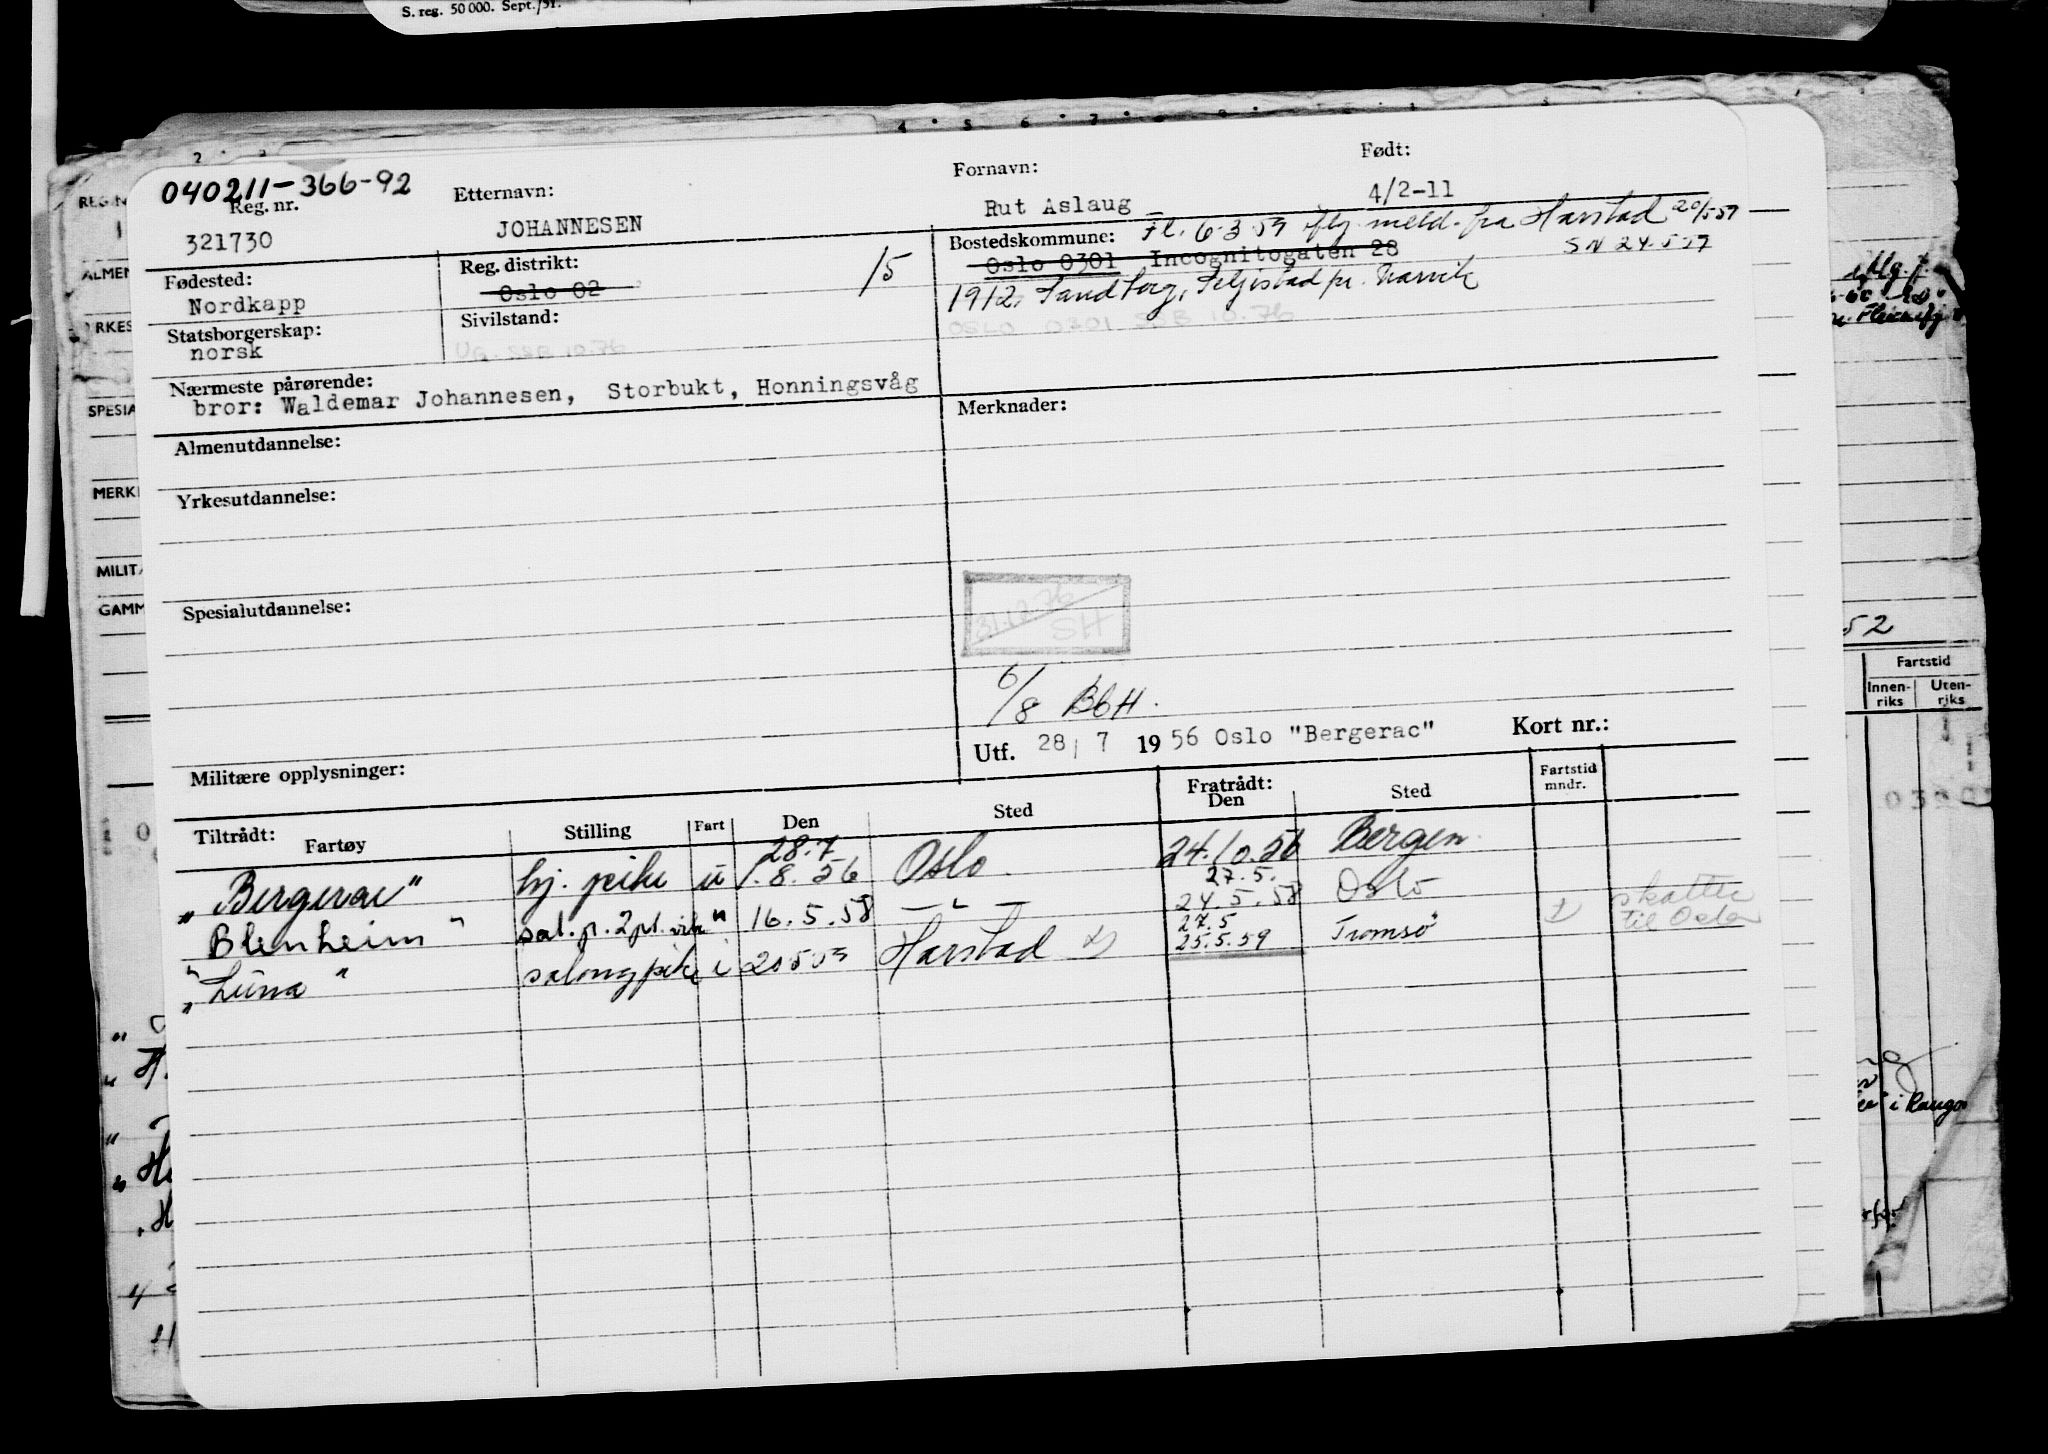 S. reg. 50 000. Sept./51.
040211-366-92
Reg. nr.
321730
Etternavn:
JOHANNESEN
Fornavn:
Rut Aslaug
Født:
4/2-11
Fødested:
Nordkapp
Reg. distrikt:
Oslo 02
15
Bostedskommune: Fl. 6.3.59 iflg. meld. fra Harstad 20/5 59
Oslo 0301 Incognitogaten 28
1912, Sandtorg, pr. Narvik
Statsborgerskap:
norsk
Sivilstand:
Ug. SSB 10.76
OSLO 0301 SSB 10.76
Nærmeste pårørende:
bror: Waldemar Johannesen, Storbukt, Honningsvåg
Merknader:
Almenutdannelse:
Yrkesutdannelse:
Spesialutdannelse:
31.12.76
SH
6/8 BbH.
Militære opplysninger:
Utf. 28/7 1956 Oslo "Bergerac"
Kort nr.:
Tiltrådt:
Fartøy
Stilling
Fart
Den
Sted
Fratrådt:
Den
Sted
Fartstid
mndr.
28.7
„Bergerac" hj. pike u 1.8.56 Oslo 24.10.56 Bergen
27.5.
Blenheim" sal. p. 2 pl. " 16.5.58 — " — 24.5.58 Oslo
skatter
til Oslo
27.5
"Luna" salongpike i 20 5 59 Harstad 25.5.59 Tromsø
REG.N
ALMEN
YRKES
SPESIA
MERK
MILIT
GAMM
52
Fartstid
Innen-
riks
Uten-
riks